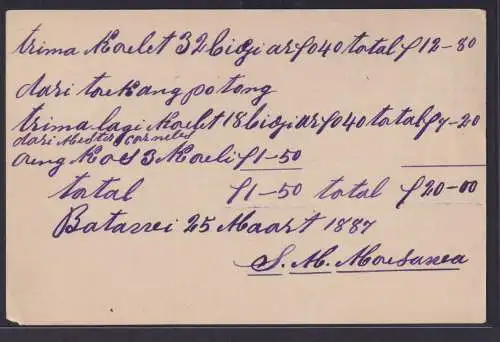 trima Koelet 32 bidji ar f040 total f12-80
dari toekang potong
trima lagi Koelet 18 bidji ar f040 total f7-20
dari Mester Cornelis
oeng Koes 3 Koeli f1-50
total f1-50 total f20-00
Batavei 25 Maart 1887
S. M. Moesawa